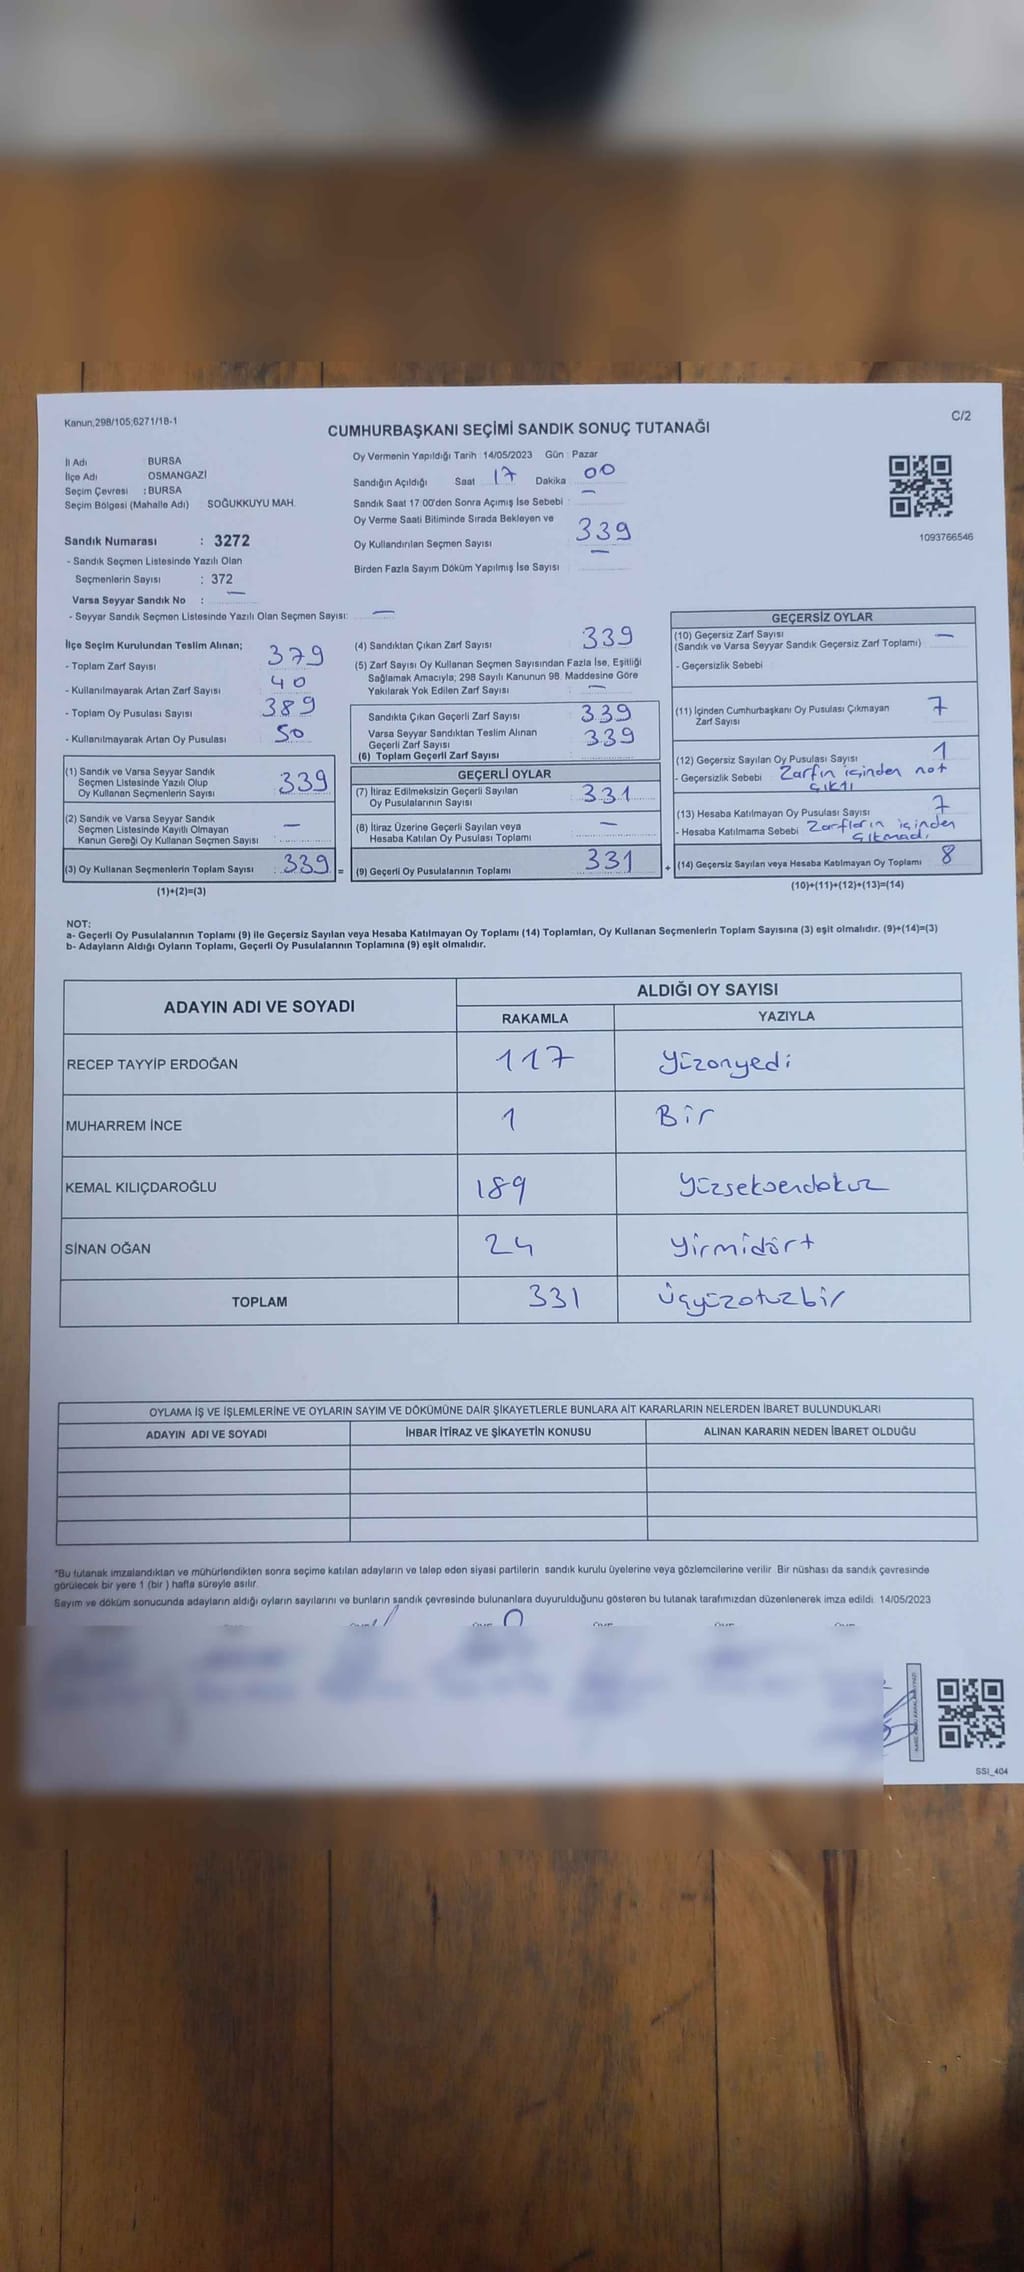 Kanun,298/105;6271/18-1
C/2
CUMHURBAŞKANI SEÇİMİ SANDIK SONUÇ TUTANAĞI
İl Adı BURSA
İlçe Adı OSMANGAZİ
Seçim Çevresi : BURSA
Seçim Bölgesi (Mahalle Adı) SOĞUKKUYU MAH.
Oy Vermenin Yapıldığı Tarih 14/05/2023 Gün Pazar
Sandığın Açıldığı Saat 17 Dakika 00
Sandık Saat 17.00'den Sonra Açımış İse Sebebi : —
Oy Verme Saati Bitiminde Sırada Bekleyen ve
Oy Kullandırılan Seçmen Sayısı 339
Birden Fazla Sayım Döküm Yapılmış İse Sayısı —
1093766546
Sandık Numarası : 3272
- Sandık Seçmen Listesinde Yazılı Olan
Seçmenlerin Sayısı : 372
Varsa Seyyar Sandık No : —
- Seyyar Sandık Seçmen Listesinde Yazılı Olan Seçmen Sayısı: —
İlçe Seçim Kurulundan Teslim Alınan;
- Toplam Zarf Sayısı 379
- Kullanılmayarak Artan Zarf Sayısı 40
- Toplam Oy Pusulası Sayısı 389
- Kullanılmayarak Artan Oy Pusulası 50
(1) Sandık ve Varsa Seyyar Sandık
Seçmen Listesinde Yazılı Olup
Oy Kullanan Seçmenlerin Sayısı 339
(2) Sandık ve Varsa Seyyar Sandık
Seçmen Listesinde Kayıtlı Olmayan
Kanun Gereği Oy Kullanan Seçmen Sayısı —
(3) Oy Kullanan Seçmenlerin Toplam Sayısı 339
(1)+(2)=(3)
(4) Sandıktan Çıkan Zarf Sayısı 339
(5) Zarf Sayısı Oy Kullanan Seçmen Sayısından Fazla İse, Eşitliği
Sağlamak Amacıyla; 298 Sayılı Kanunun 98. Maddesine Göre
Yakılarak Yok Edilen Zarf Sayısı —
Sandıkta Çıkan Geçerli Zarf Sayısı 339
Varsa Seyyar Sandıktan Teslim Alınan 339
Geçerli Zarf Sayısı
(6) Toplam Geçerli Zarf Sayısı
GEÇERLİ OYLAR
(7) İtiraz Edilmeksizin Geçerli Sayılan
Oy Pusulalarının Sayısı 331
(8) İtiraz Üzerine Geçerli Sayılan veya
Hesaba Katılan Oy Pusulası Toplamı —
= (9) Geçerli Oy Pusulalarının Toplamı 331
GEÇERSİZ OYLAR
(10) Geçersiz Zarf Sayısı —
(Sandık ve Varsa Seyyar Sandık Geçersiz Zarf Toplamı)
- Geçersizlik Sebebi
(11) İçinden Cumhurbaşkanı Oy Pusulası Çıkmayan
Zarf Sayısı 7
(12) Geçersiz Sayılan Oy Pusulası Sayısı 1
- Geçersizlik Sebebi Zarfın içinden not
çıktı
(13) Hesaba Katılmayan Oy Pusulası Sayısı 7
- Hesaba Katılmama Sebebi Zarfların içinden
çıkmadı
+ (14) Geçersiz Sayılan veya Hesaba Katılmayan Oy Toplamı 8
(10)+(11)+(12)+(13)=(14)
NOT:
a- Geçerli Oy Pusulalarının Toplamı (9) ile Geçersiz Sayılan veya Hesaba Katılmayan Oy Toplamı (14) Toplamları, Oy Kullanan Seçmenlerin Toplam Sayısına (3) eşit olmalıdır. (9)+(14)=(3)
b- Adayların Aldığı Oyların Toplamı, Geçerli Oy Pusulalarının Toplamına (9) eşit olmalıdır.
ADAYIN ADI VE SOYADI
ALDIĞI OY SAYISI
RAKAMLA YAZIYLA
RECEP TAYYİP ERDOĞAN 117 yüzonyedi
MUHARREM İNCE 1 Bir
KEMAL KILIÇDAROĞLU 189 yüzseksendokuz
SİNAN OĞAN 24 yirmidört
TOPLAM 331 üçyüzotuzbir
OYLAMA İŞ VE İŞLEMLERİNE VE OYLARIN SAYIM VE DÖKÜMÜNE DAİR ŞİKAYETLERLE BUNLARA AİT KARARLARIN NELERDEN İBARET BULUNDUKLARI
ADAYIN ADI VE SOYADI İHBAR İTİRAZ VE ŞİKAYETİN KONUSU ALINAN KARARIN NEDEN İBARET OLDUĞU
*Bu tutanak imzalandıktan ve mühürlendikten sonra seçime katılan adayların ve talep eden siyasi partilerin sandık kurulu üyelerine veya gözlemcilerine verilir. Bir nüshası da sandık çevresinde
görülecek bir yere 1 (bir ) hafta süreyle asılır.
Sayım ve döküm sonucunda adayların aldığı oyların sayılarını ve bunların sandık çevresinde bulunanlara duyurulduğunu gösteren bu tutanak tarafımızdan düzenlenerek imza edildi. 14/05/2023
SSI_404